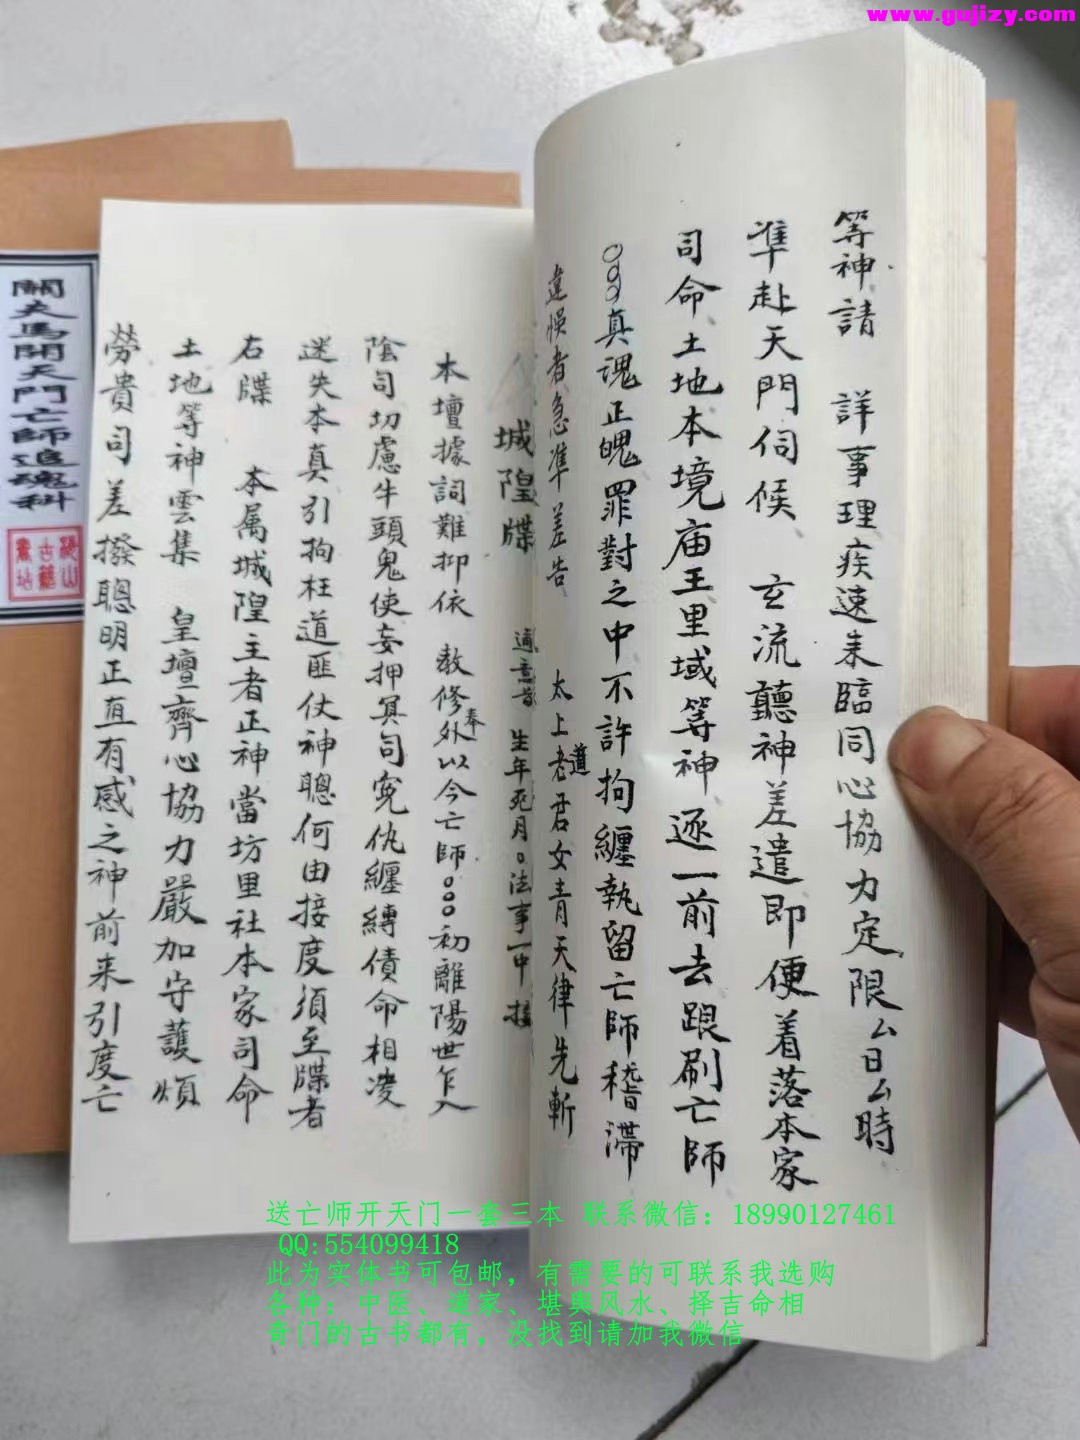 www.gujizy.com
等神請 詳事理疾速来臨同心協力定限厶日厶時
準赴天門伺候 玄流聽神差遣即便着落本家
司命土地本境庙王里域等神逐一前去跟刷亡師
○○○真魂正魄罪對之中不許拘纏執留亡師稽滯
違悞者急準差告 太上道老君女青天律先斬
城隍牒 生年死月○法事一中
本壇據詞難抑依 教修奉外以今亡師○○○初離陽世乍入
陰司切慮牛頭鬼使妄押冥司寃仇纏縛債命相凌
迷失本真引拘枉道匪仗神聰何由接度須至牒者
右牒 本属城隍主者正神當坊里社本家司命
土地等神雲集 皇壇齊心協力嚴加守護煩
勞貴司差撥聰明正直有感之神前来引度亡
關夫馬開天門亡師追魂科
送亡师开天门一套三本 联系微信：18990127461
QQ:554099418
此为实体书可包邮，有需要的可联系我选购
各种：中医、道家、堪舆风水、择吉命相
奇门的古书都有，没找到请加我微信